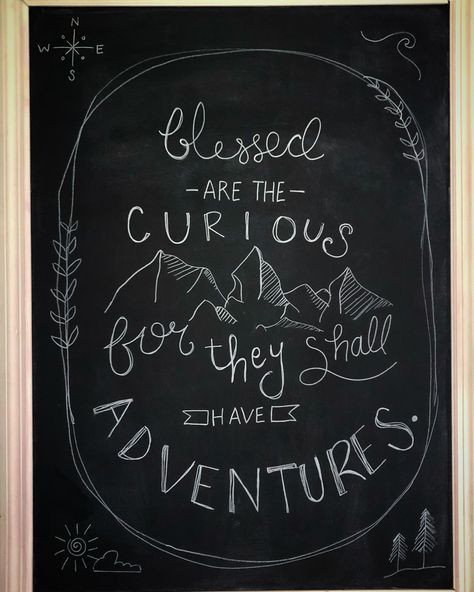 N
W E
S
blessed
- ARE THE -
CURIOUS
for they shall
HAVE
ADVENTURES.